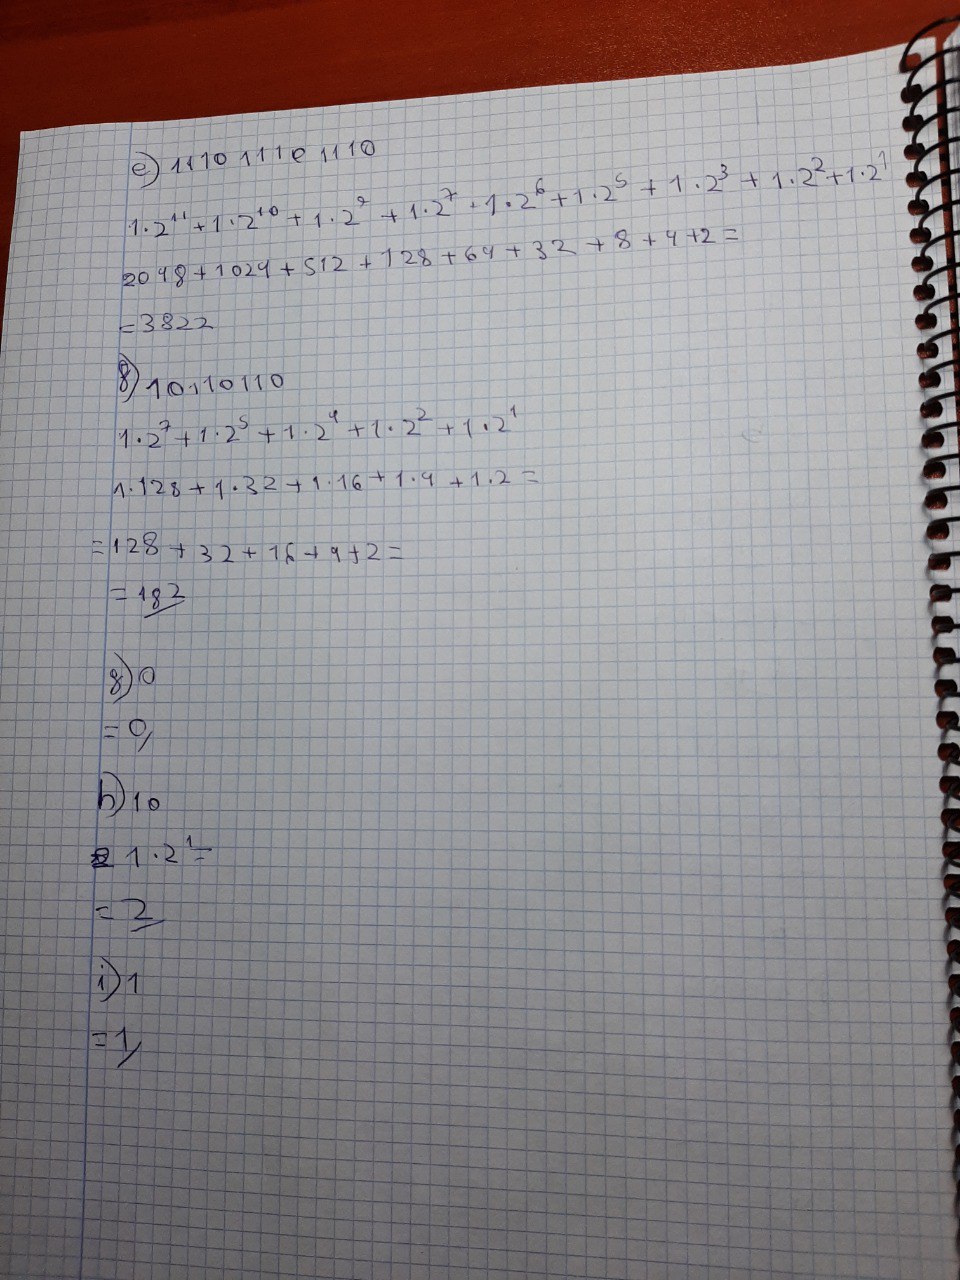 e) 1110 1110 1110
1·2¹¹+1·2¹⁰+1·2⁹+1·2⁷·1·2⁶+1·2⁵+1·2³+1·2²+1·2¹
2048+1024+512+128+64+32+8+4+2=
=3822
f) 10110110
1·2⁷+1·2⁵+1·2⁴+1·2²+1·2¹
1·128+1·32+1·16+1·4+1·2=
=128+32+16+4+2=
=182
g) 0
=0
h) 10
1·2¹=
=2
i) 1
=1